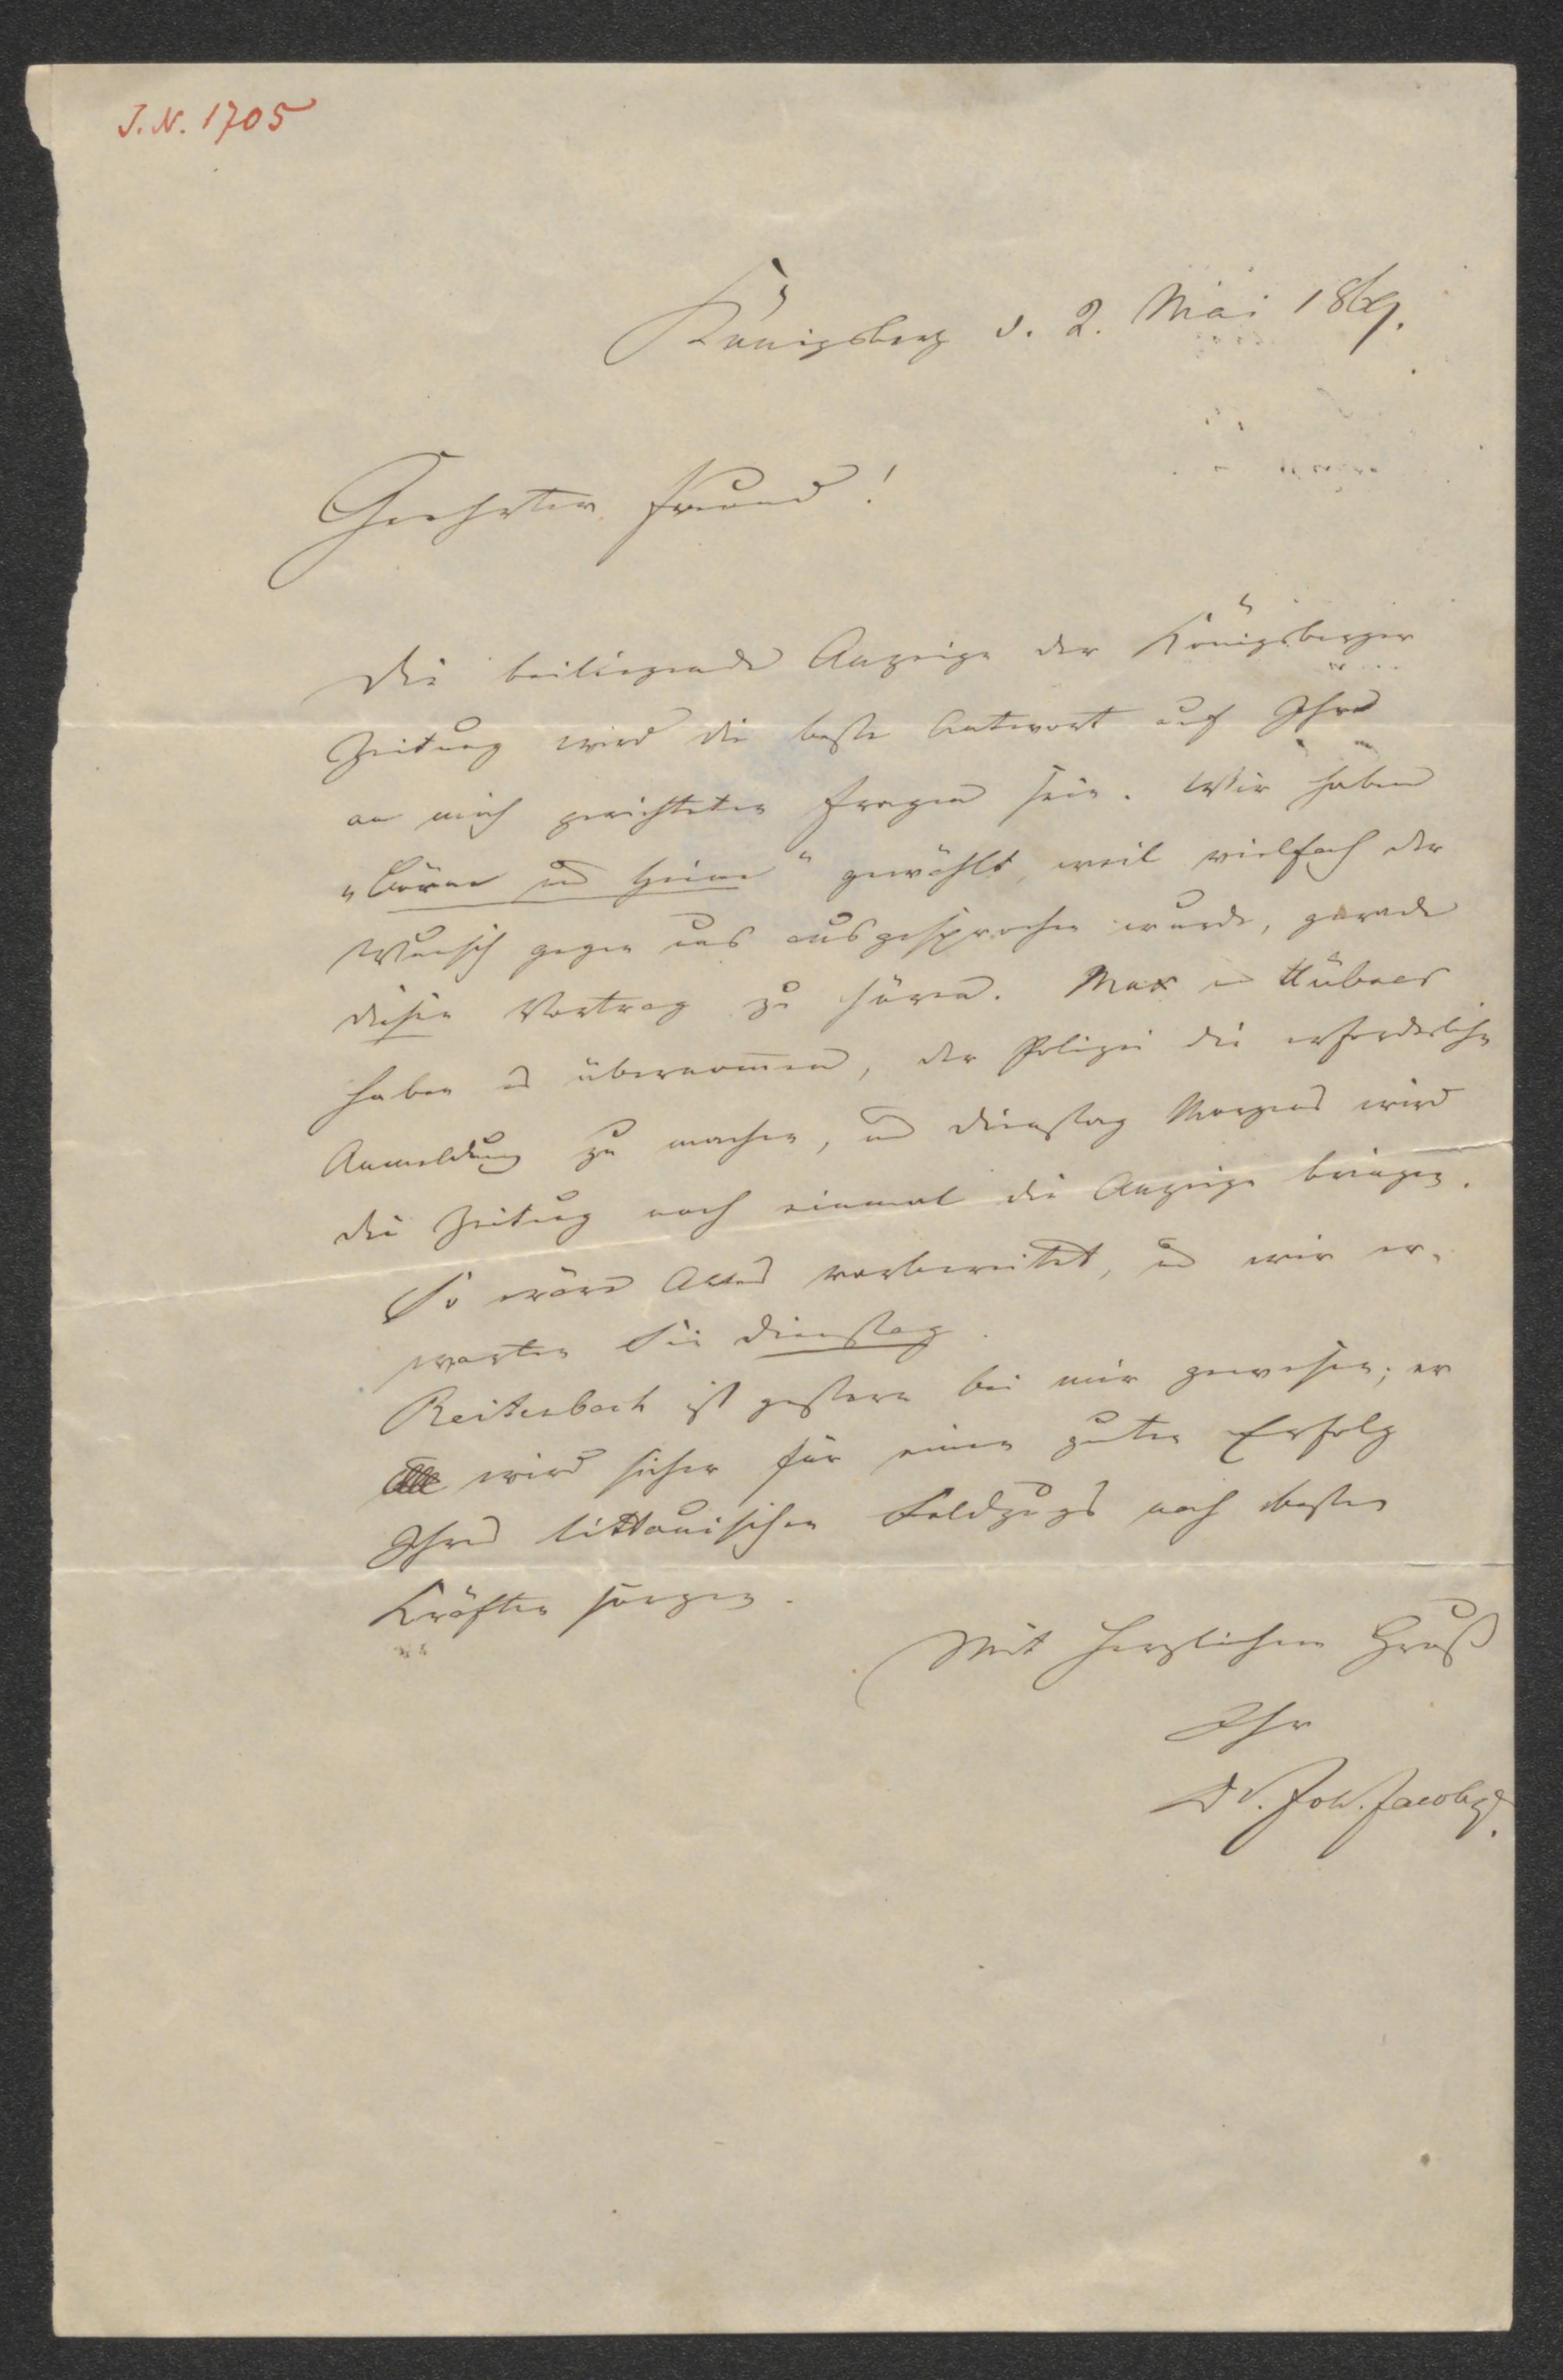 J. N. 1705
Königsberg d. 2. Mai 1869.
Geehrter Freund!
Die beiliegende Anzeige der Königsberger
Zeitung wird die beste Antwort auf Ihre
an mich gerichteten Fragen sein. Wir haben
„Börne und Heine“ gewählt, weil vielfach der
Wunsch gegen uns ausgesprochen wurde, gerade
diesen Vortrag zu hören. Max u Hübner
haben es übernommen, der Polizei die erforderliche
Anmeldung zu machen, und Dienstag Morgens wird
die Zeitung noch einmal die Anzeige bringen.
So wäre Alles vorbereitet, und wir er-
warten Sie Dienstag.
Reitenbach ist gestern bei mir gewesen; er
wird sicher für einen guten Erfolg
Ihres littauischen Feldzugs nach besten
Kräften sorgen.
Mit herzlichem Gruß
Ihr
Dr. Joh. Jacoby.